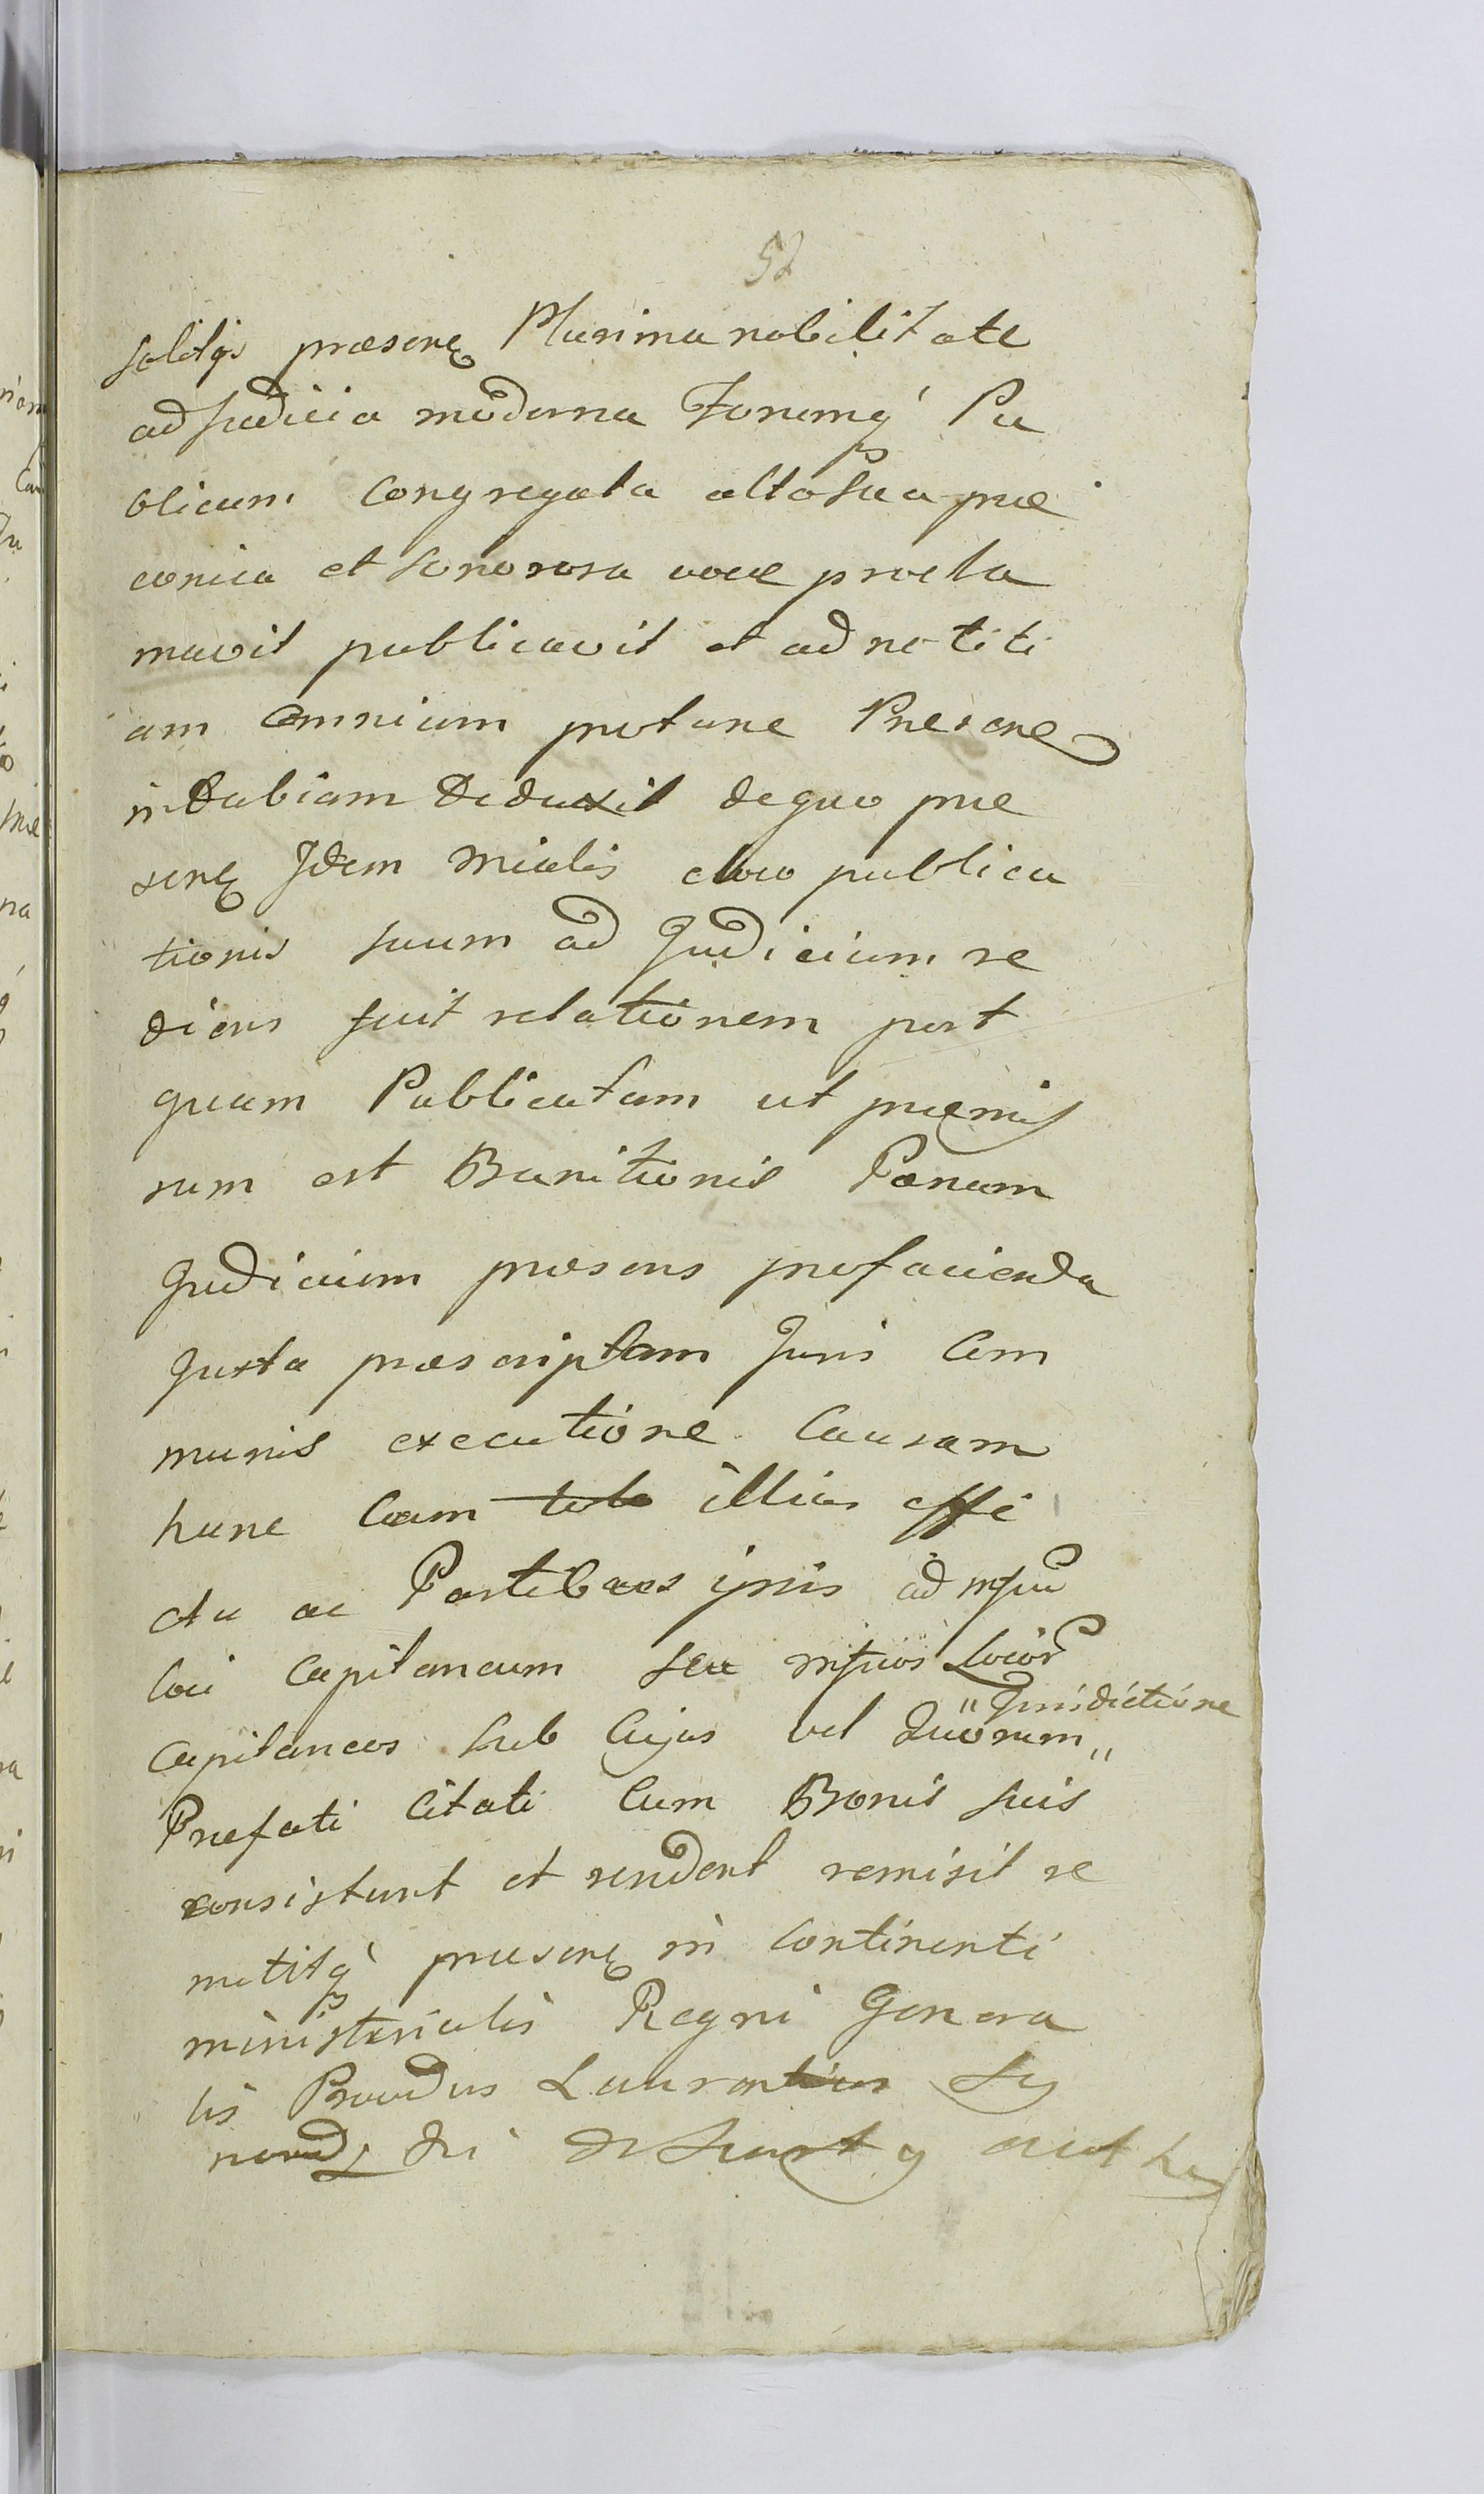 52
solitqs præsenę Plurima nobilitate
ad Judicia moderna Forumq Pu
blicum Congregata alta sua præ
conica et sonorosa voce procla
mavit publicavit et ad notiti
am Omnium protunc Presene
indubiam deduxit de quo præ
senę Idem Mialis eloco publica
tionis suum ad Judicium re
diens fuit relationem post
quam Publicatam ut præmis
sum est Banitionis Pænam
Judicium præsens profacienda
Juxta præscriptam Juris Com
munis executione Causam
hanc Cum toto illius effe
ctu ac Partibus ipsis ad
loci Capitaneum seu Locor
Capitaneos sub Cujus vel Quorum "
" Jurisdictione
Præfati Citati Cum Bonis suis
consistunt et resident remisit re
mititq præsenę in Continenti
ministerialis Regni Genera
lis Providus Laurentius
de